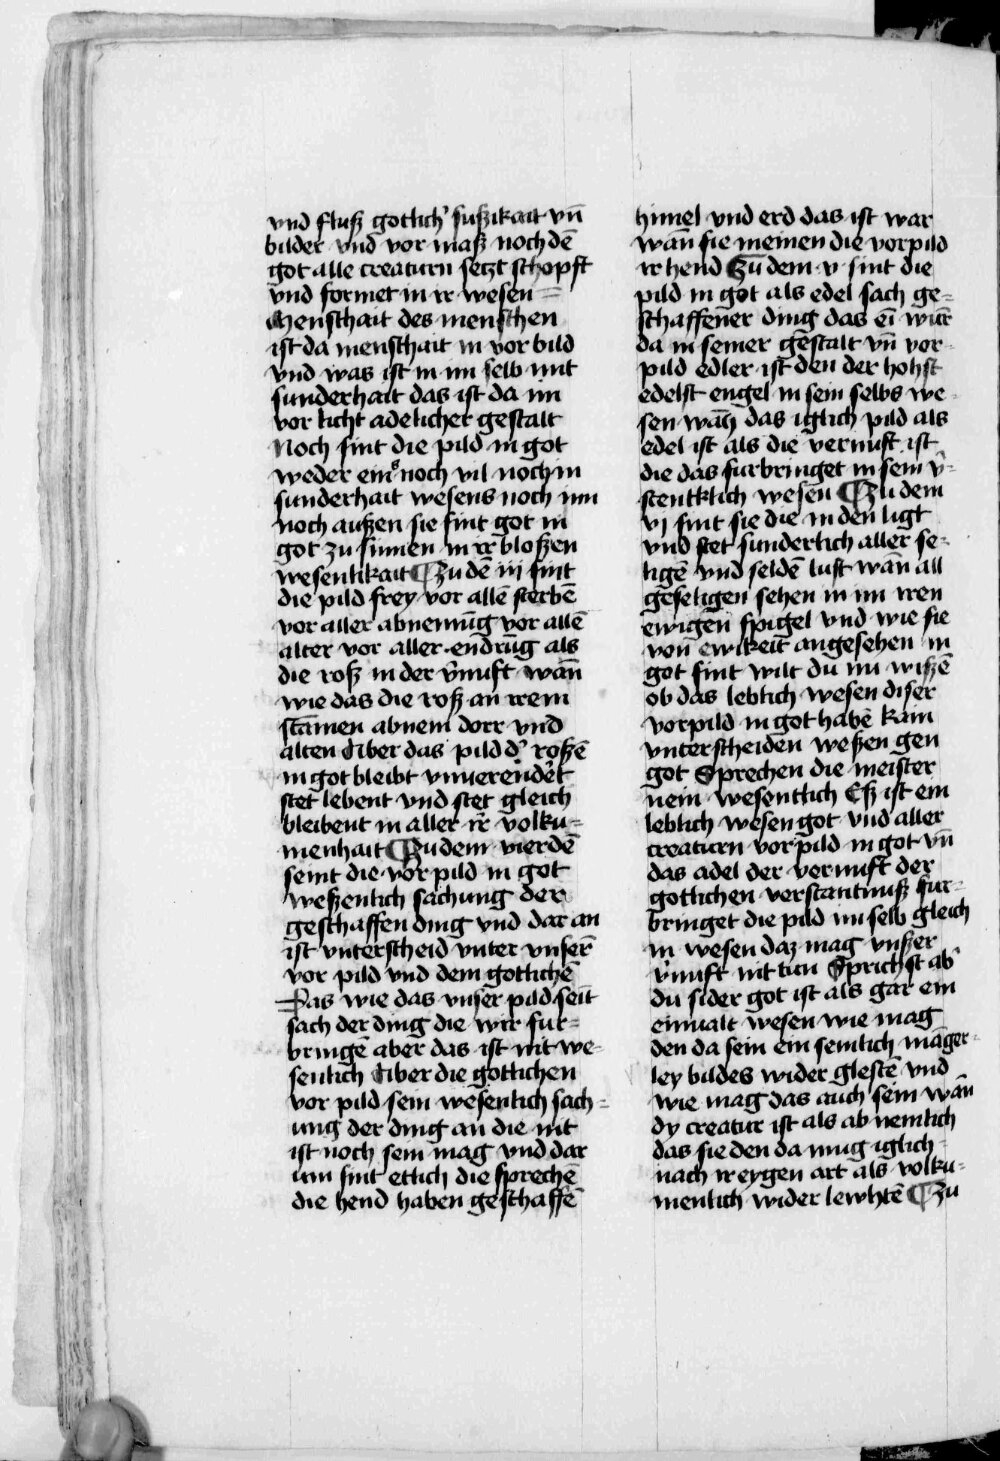 vnd fluſz gotlich' ſuſzikait vn̄
bilder vnd vor maſz noch dē
got alle creaturn ſetzt ſchopft
vnd formet in ir weſen =
Menſchait des menſchen
iſt da menſchait in vor bild
vnd was iſt in im ſelb mit
ſunderhait das iſt da im
vor licht adelicher geſtalt
Noch ſint die pild in got
weder eins noch vil noch in
ſunderhait weſens noch inn
noch auſzen ſie ſint got in
got zu ſinnen in ir bloſzen
weſenlikait ¶ Zu dē iij ſint
die pild frey vor allē ſterbē
vor aller abnemūg vor allē
alter vor aller endrūg als
die roſz in der v̄nuft wan̄
wie das die roſz an irem
ſtāmen abnem dorr vnd
alten Aber das pild d' roſzē
in got bleibt vnuerendert
ſtet lebent vnd ſtet gleich
bleibent in aller ir volku=
menhait ¶ Zu dem vierdē
ſeint die vor pild in got
weſzenlich ſachung der
geſchaffen ding vnd dar an
iſt vnterſcheid vnter vnſerē
vor pild vnd dem gotlichē
Das wie das vnſer pild ſeit
ſach der ding die wir fur=
bringē aber das iſt nit we=
ſenlich Aber die gotlichen
vor pild ſein weſenlich ſach=
ung der ding an die nit
iſt noch ſein mag vnd dar
um ſint etlich die ſprechē
die hend haben geſchaffē
himel vnd erd das iſt war
wan̄ ſie meinen die vorpild
ir hend Zu dem v ſint die
pild in got als edel ſach ge=
ſchaffener ding das ei wur
da in ſeiner geſtalt vn̄ vor=
pild edler iſt den der hohſt
edelſt engel in ſein ſelbs we=
ſen wan̄ das iglich pild als
edel iſt als die vernuft iſt
die das furbringet in ſein v̄=
ſtentklich weſen ¶ Zu dem
vj ſint ſie die in den ligt
vnd ſtet ſunderlich aller ſe=
ligē vnd ſeldē luſt wan̄ all
geſeligen ſehen in im iren
ewigen ſpigel vnd wie ſie
von ewikeit angeſehen in
got ſint wilt du nu wiſzē
ob das leblich weſen diſer
vorpild in got habē kain
vnterſcheiden weſzen gen
got Sprechen die meiſter
nein weſentlich Eſz iſt ein
leblich weſen got vnd aller
creaturn vorpild in got vn̄
das adel der vernuft der
gotlichen verſtantnuſz fur=
bringet die pild im ſelb gleich
in weſen daz mag vnſzer
v̄nuft nit tun Sprichſt ab'
du ſider got iſt als gar ein
einualt weſen wie mag
den da ſein ein ſemlich māger=
ley bildes wider gleſtē vnd
wie mag das auch ſein wan̄
dy creatur iſt als ab nemlich
das ſie den da mug iglich=
nach ir eygen art als volku=
menlich wider lewhtē ¶ Zu